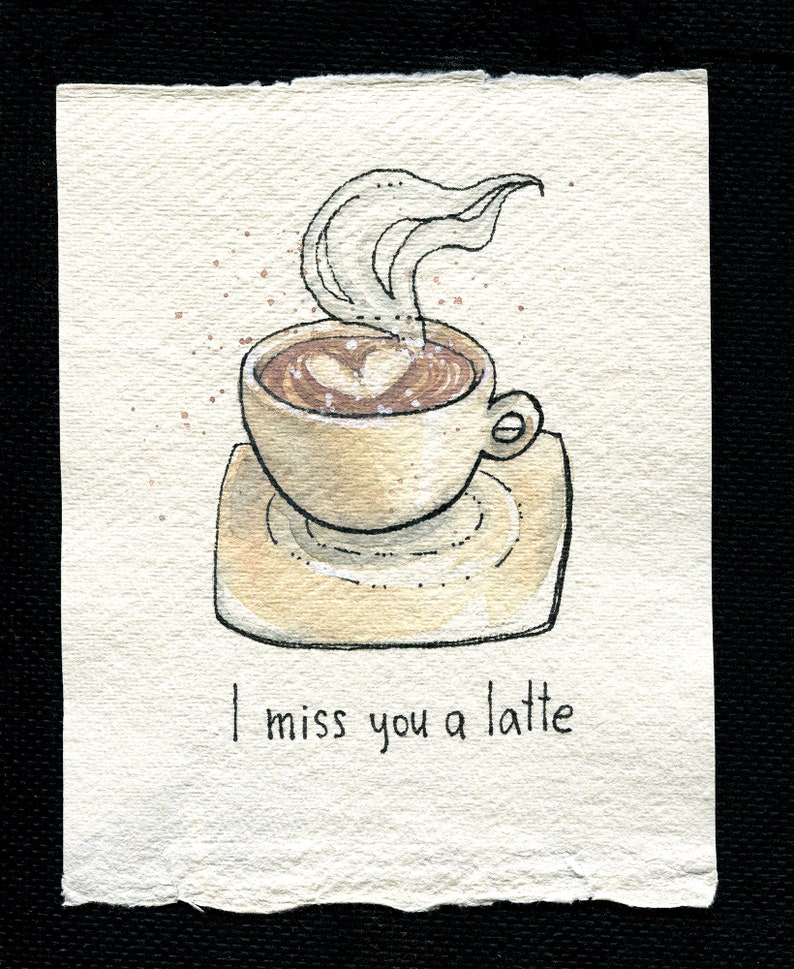 I miss you a latte